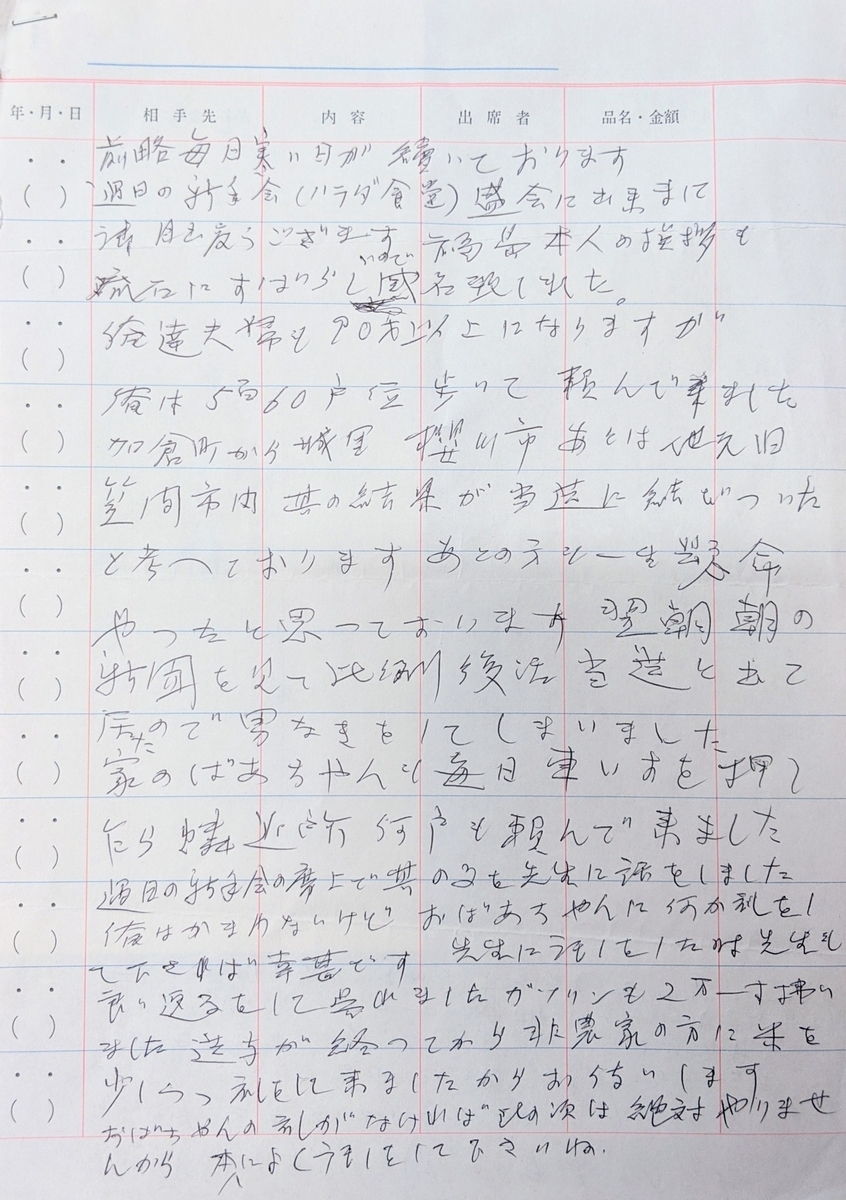 年・月・日 相手先 内容 出席者 品名・金額
前略毎日寒い日が続いております
過日の新年会(ハラダ食堂)盛会に出来まして
誠に目出度うございます 本人の挨拶も
流石にすばらしいので感名致しました。
俺達夫婦も90才以上になりますが
俺は5百60戸位歩いて頼んで来ました
加倉町から城里 桜川市あとは地元旧
笠間市内 其の結果が当選に結びついた
と考へております あとの方も一生懸命
やったと思っております 翌朝朝の
新聞を見て比例復活当選と出て
居たので男なきをしてしまいました
家のばあちゃんも毎日車いすを押し
乍ら隣近所何戸も頼んで来ました
過日の新年会の席上で其の事を先生に話をしました
俺はかまわないけど おばあちゃんに何か礼をし
て下されば幸甚です 先生に話をした時先生も
良い返事をして呉れましたガソリンも2万一寸払い
ました選挙が終ってから非農家の方に米を
少しづつ礼をして来ましたからお願いします
おばちゃんの礼がなければ此の次は絶対やりませ
んから 本人によく話をして下さいね.